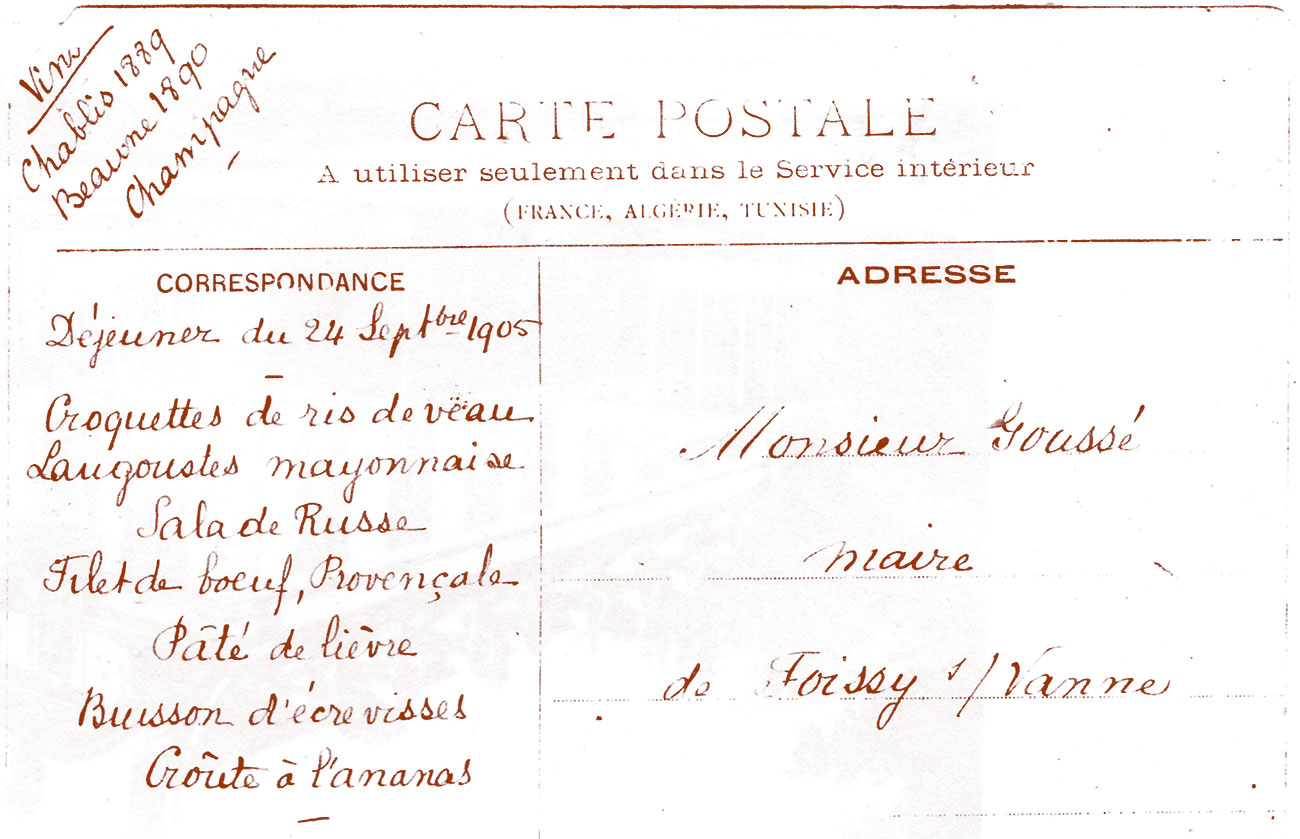 Vins
Chablis 1889
Beaune 1890
Champagne
CARTE POSTALE
A utiliser seulement dans le Service intérieur
(FRANCE, ALGÉRIE, TUNISIE)
CORRESPONDANCE
Déjeuner du 24 Septbre 1905
Croquettes de ris de veau
Langoustes mayonnaise
Salade Russe
Filet de boeuf, Provençale
Pâté de lièvre
Buisson d'écrevisses
Croûte à l'ananas
ADRESSE
Monsieur Goussé
maire
de Foissy s/Vanne